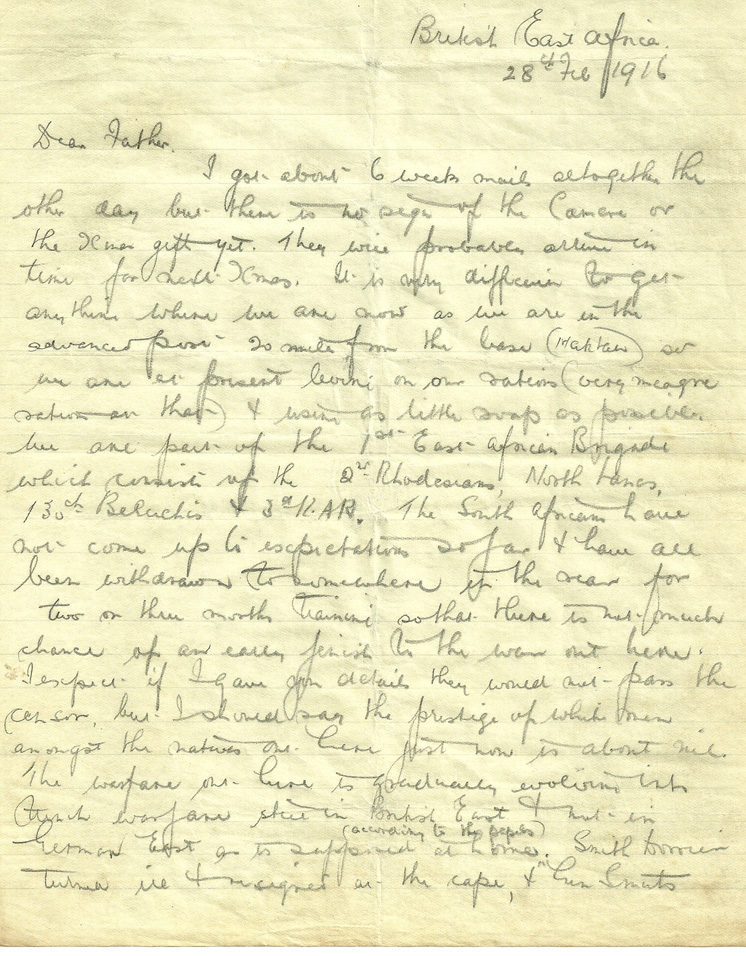 British East Africa.
28th Feb 1916
Dear Father.
I got about 6 weeks mails altogether the
other day but there is no sign of the Camera or
the Xmas gift yet. They will probably arrive in
time for next Xmas. It is very difficult to get
anything where we are now as we are in the
advanced post 20 miles from the base (Maktau) so
we are at present living on our rations (very meagre
rations at that) & using as little soap as possible.
We are part of the 1st East African Brigade
which consists of the 2nd Rhodesians, North Lancs,
130th Beluchis & 3rd K.A.R. The South Africans have
not come up to expectations so far & have all
been withdrawn to somewhere in the rear for
two or three months training so that there is not much
chance of an early finish to the war out here.
I expect if I gave you details they would not pass the
censor, but I should say the prestige of white men
amongst the natives out here just now is about nil.
The warfare out here is gradually evolving into
trench warfare still in British East & not in
German East as is supposed at home. (according to the papers) Smith Dorrien
turned ill & resigned at the Cape, & Gen Smuts